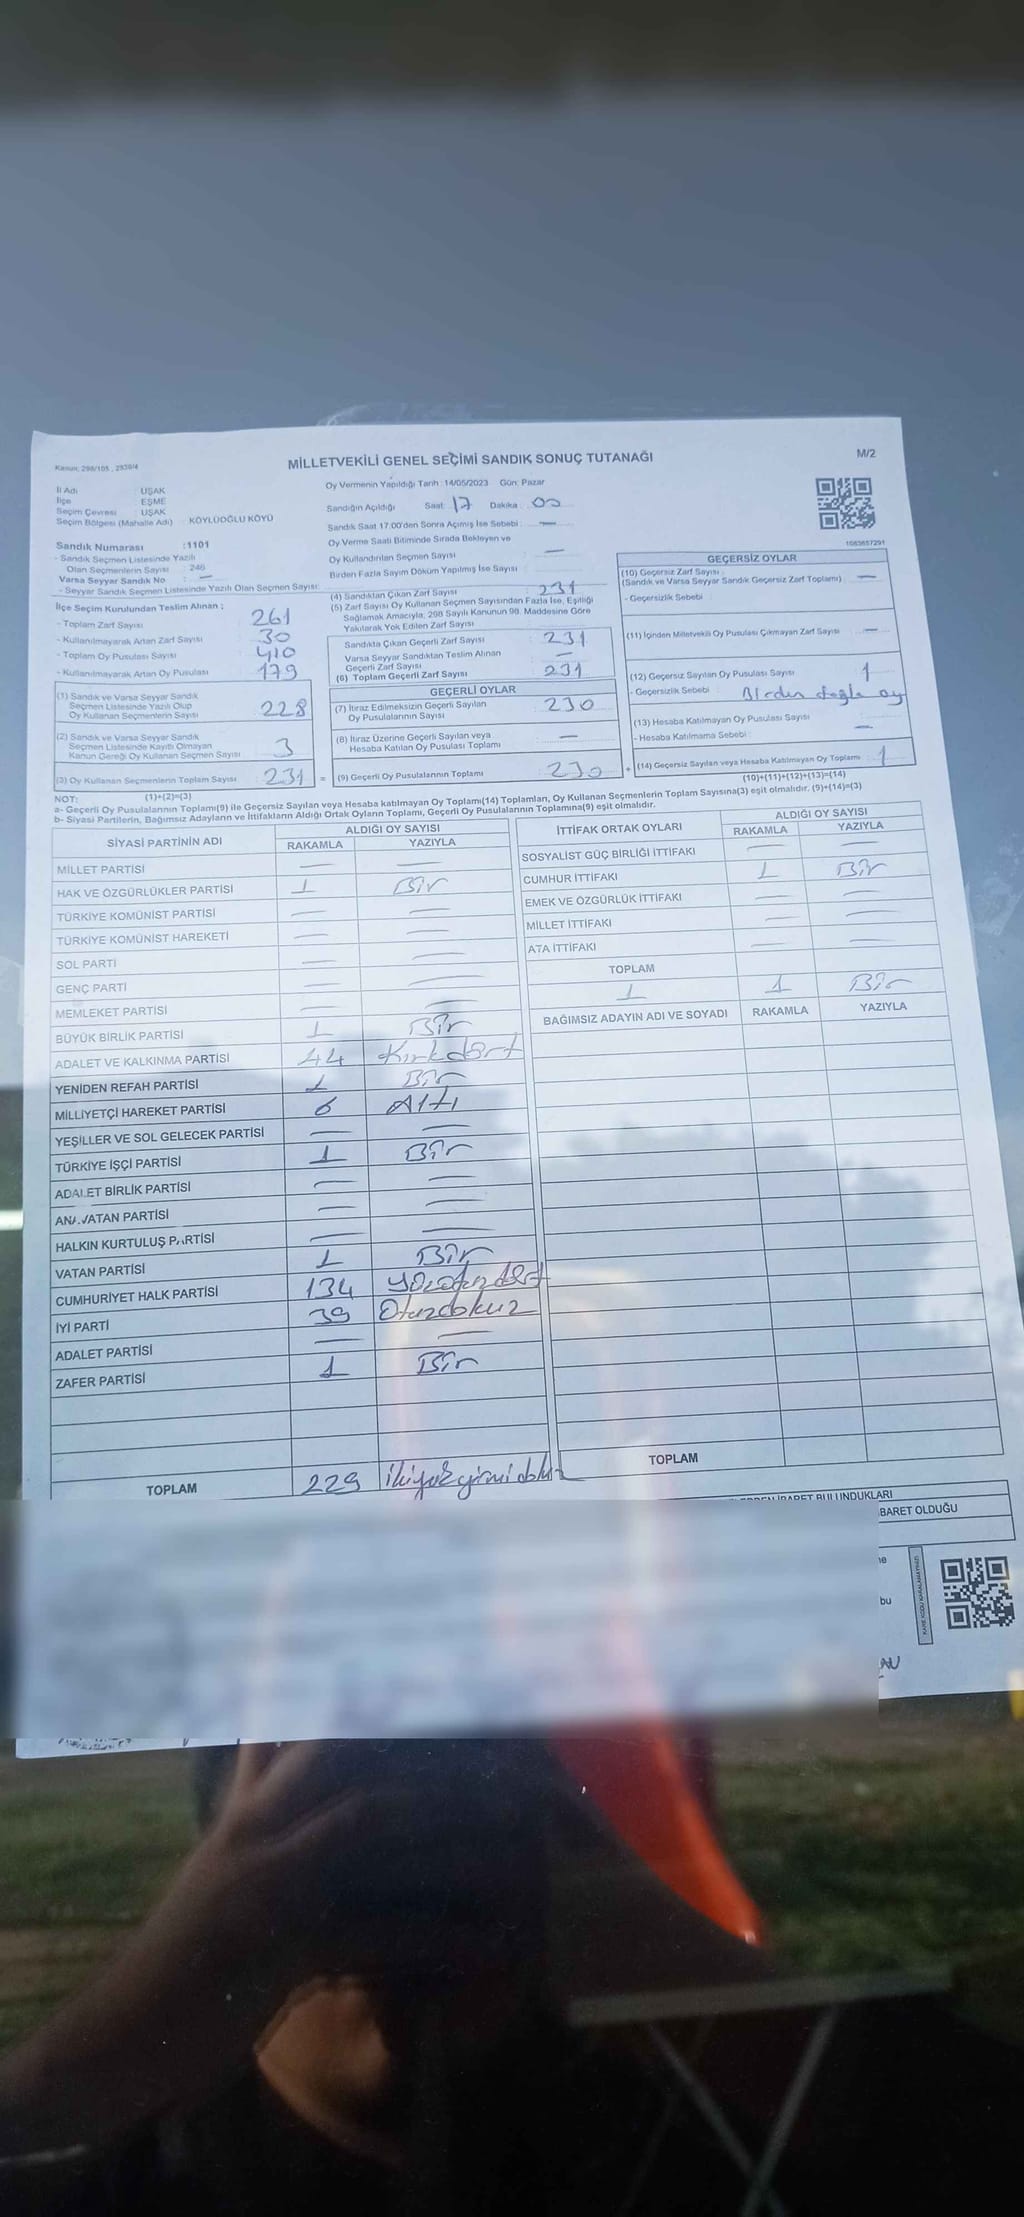 Kanun, 298/105 , 2839/4
MİLLETVEKİLİ GENEL SEÇİMİ SANDIK SONUÇ TUTANAĞI
M/2
İl Adı : UŞAK
İlçe : EŞME
Seçim Çevresi : UŞAK
Seçim Bölgesi (Mahalle Adı) : KÖYLÜOĞLU KÖYÜ
Sandık Numarası :1101
- Sandık Seçmen Listesinde Yazılı
Olan Seçmenlerin Sayısı : 246
Varsa Seyyar Sandık No : —
- Seyyar Sandık Seçmen Listesinde Yazılı Olan Seçmen Sayısı:
İlçe Seçim Kurulundan Teslim Alınan ;
- Toplam Zarf Sayısı 261
- Kullanılmayarak Artan Zarf Sayısı 30
- Toplam Oy Pusulası Sayısı 410
- Kullanılmayarak Artan Oy Pusulası 179
(1) Sandık ve Varsa Seyyar Sandık
Seçmen Listesinde Yazılı Olup
Oy Kullanan Seçmenlerin Sayısı 228
(2) Sandık ve Varsa Seyyar Sandık
Seçmen Listesinde Kayıtlı Olmayan
Kanun Gereği Oy Kullanan Seçmen Sayısı 3
(3) Oy Kullanan Seçmenlerin Toplam Sayısı 231
(1)+(2)=(3)
Oy Vermenin Yapıldığı Tarih : 14/05/2023 Gün: Pazar
Sandığın Açıldığı Saat: 17 Dakika : 00
Sandık Saat 17:00'den Sonra Açılmış İse Sebebi : —
Oy Verme Saati Bitiminde Sırada Bekleyen ve
Oy Kullandırılan Seçmen Sayısı —
Birden Fazla Sayım Döküm Yapılmış İse Sayısı :
(4) Sandıktan Çıkan Zarf Sayısı 231
(5) Zarf Sayısı Oy Kullanan Seçmen Sayısından Fazla İse, Eşitliği
Sağlamak Amacıyla, 298 Sayılı Kanunun 98. Maddesine Göre
Yakılarak Yok Edilen Zarf Sayısı
Sandıkta Çıkan Geçerli Zarf Sayısı 231
Varsa Seyyar Sandıktan Teslim Alınan
Geçerli Zarf Sayısı —
(6) Toplam Geçerli Zarf Sayısı 231
GEÇERLİ OYLAR
(7) İtiraz Edilmeksizin Geçerli Sayılan
Oy Pusulalarının Sayısı 230
(8) İtiraz Üzerine Geçerli Sayılan veya
Hesaba Katılan Oy Pusulası Toplamı —
= (9) Geçerli Oy Pusulalarının Toplamı 230 +
1083657291
GEÇERSİZ OYLAR
(10) Geçersiz Zarf Sayısı :
(Sandık ve Varsa Seyyar Sandık Geçersiz Zarf Toplamı) —
- Geçersizlik Sebebi :
(11) İçinden Milletvekili Oy Pusulası Çıkmayan Zarf Sayısı —
(12) Geçersiz Sayılan Oy Pusulası Sayısı 1
- Geçersizlik Sebebi : Birden fazla oy
(13) Hesaba Katılmayan Oy Pusulası Sayısı —
- Hesaba Katılmama Sebebi :
(14) Geçersiz Sayılan veya Hesaba Katılmayan Oy Toplamı 1
(10)+(11)+(12)+(13)=(14)
NOT:
a- Geçerli Oy Pusulalarının Toplamı(9) ile Geçersiz Sayılan veya Hesaba katılmayan Oy Toplamı(14) Toplamları, Oy Kullanan Seçmenlerin Toplam Sayısına(3) eşit olmalıdır. (9)+(14)=(3)
b- Siyasi Partilerin, Bağımsız Adayların ve İttifakların Aldığı Ortak Oyların Toplamı, Geçerli Oy Pusulalarının Toplamına(9) eşit olmalıdır.
SİYASİ PARTİNİN ADI
ALDIĞI OY SAYISI
RAKAMLA YAZIYLA
MİLLET PARTİSİ — —
HAK VE ÖZGÜRLÜKLER PARTİSİ 1 Bir
TÜRKİYE KOMÜNİST PARTİSİ — —
TÜRKİYE KOMÜNİST HAREKETİ — —
SOL PARTİ — —
GENÇ PARTİ — —
MEMLEKET PARTİSİ — —
BÜYÜK BİRLİK PARTİSİ 1 Bir
ADALET VE KALKINMA PARTİSİ 44 Kırkdört
YENİDEN REFAH PARTİSİ 1 Bir
MİLLİYETÇİ HAREKET PARTİSİ 6 Altı
YEŞİLLER VE SOL GELECEK PARTİSİ — —
TÜRKİYE İŞÇİ PARTİSİ 1 Bir
ADALET BİRLİK PARTİSİ — —
ANAVATAN PARTİSİ — —
HALKIN KURTULUŞ PARTİSİ — —
VATAN PARTİSİ 1 Bir
CUMHURİYET HALK PARTİSİ 134 Yüzotuzdört
İYİ PARTİ 39 Otuzdokuz
ADALET PARTİSİ — —
ZAFER PARTİSİ 1 Bir
TOPLAM 229 ikiyüzyirmidokuz
İTTİFAK ORTAK OYLARI
ALDIĞI OY SAYISI
RAKAMLA YAZIYLA
SOSYALİST GÜÇ BİRLİĞİ İTTİFAKI — —
CUMHUR İTTİFAKI 1 Bir
EMEK VE ÖZGÜRLÜK İTTİFAKI — —
MİLLET İTTİFAKI — —
ATA İTTİFAKI — —
TOPLAM
1 1 Bir
BAĞIMSIZ ADAYIN ADI VE SOYADI RAKAMLA YAZIYLA
TOPLAM
BULUNDUKLARI
BARET OLDUĞU
bu